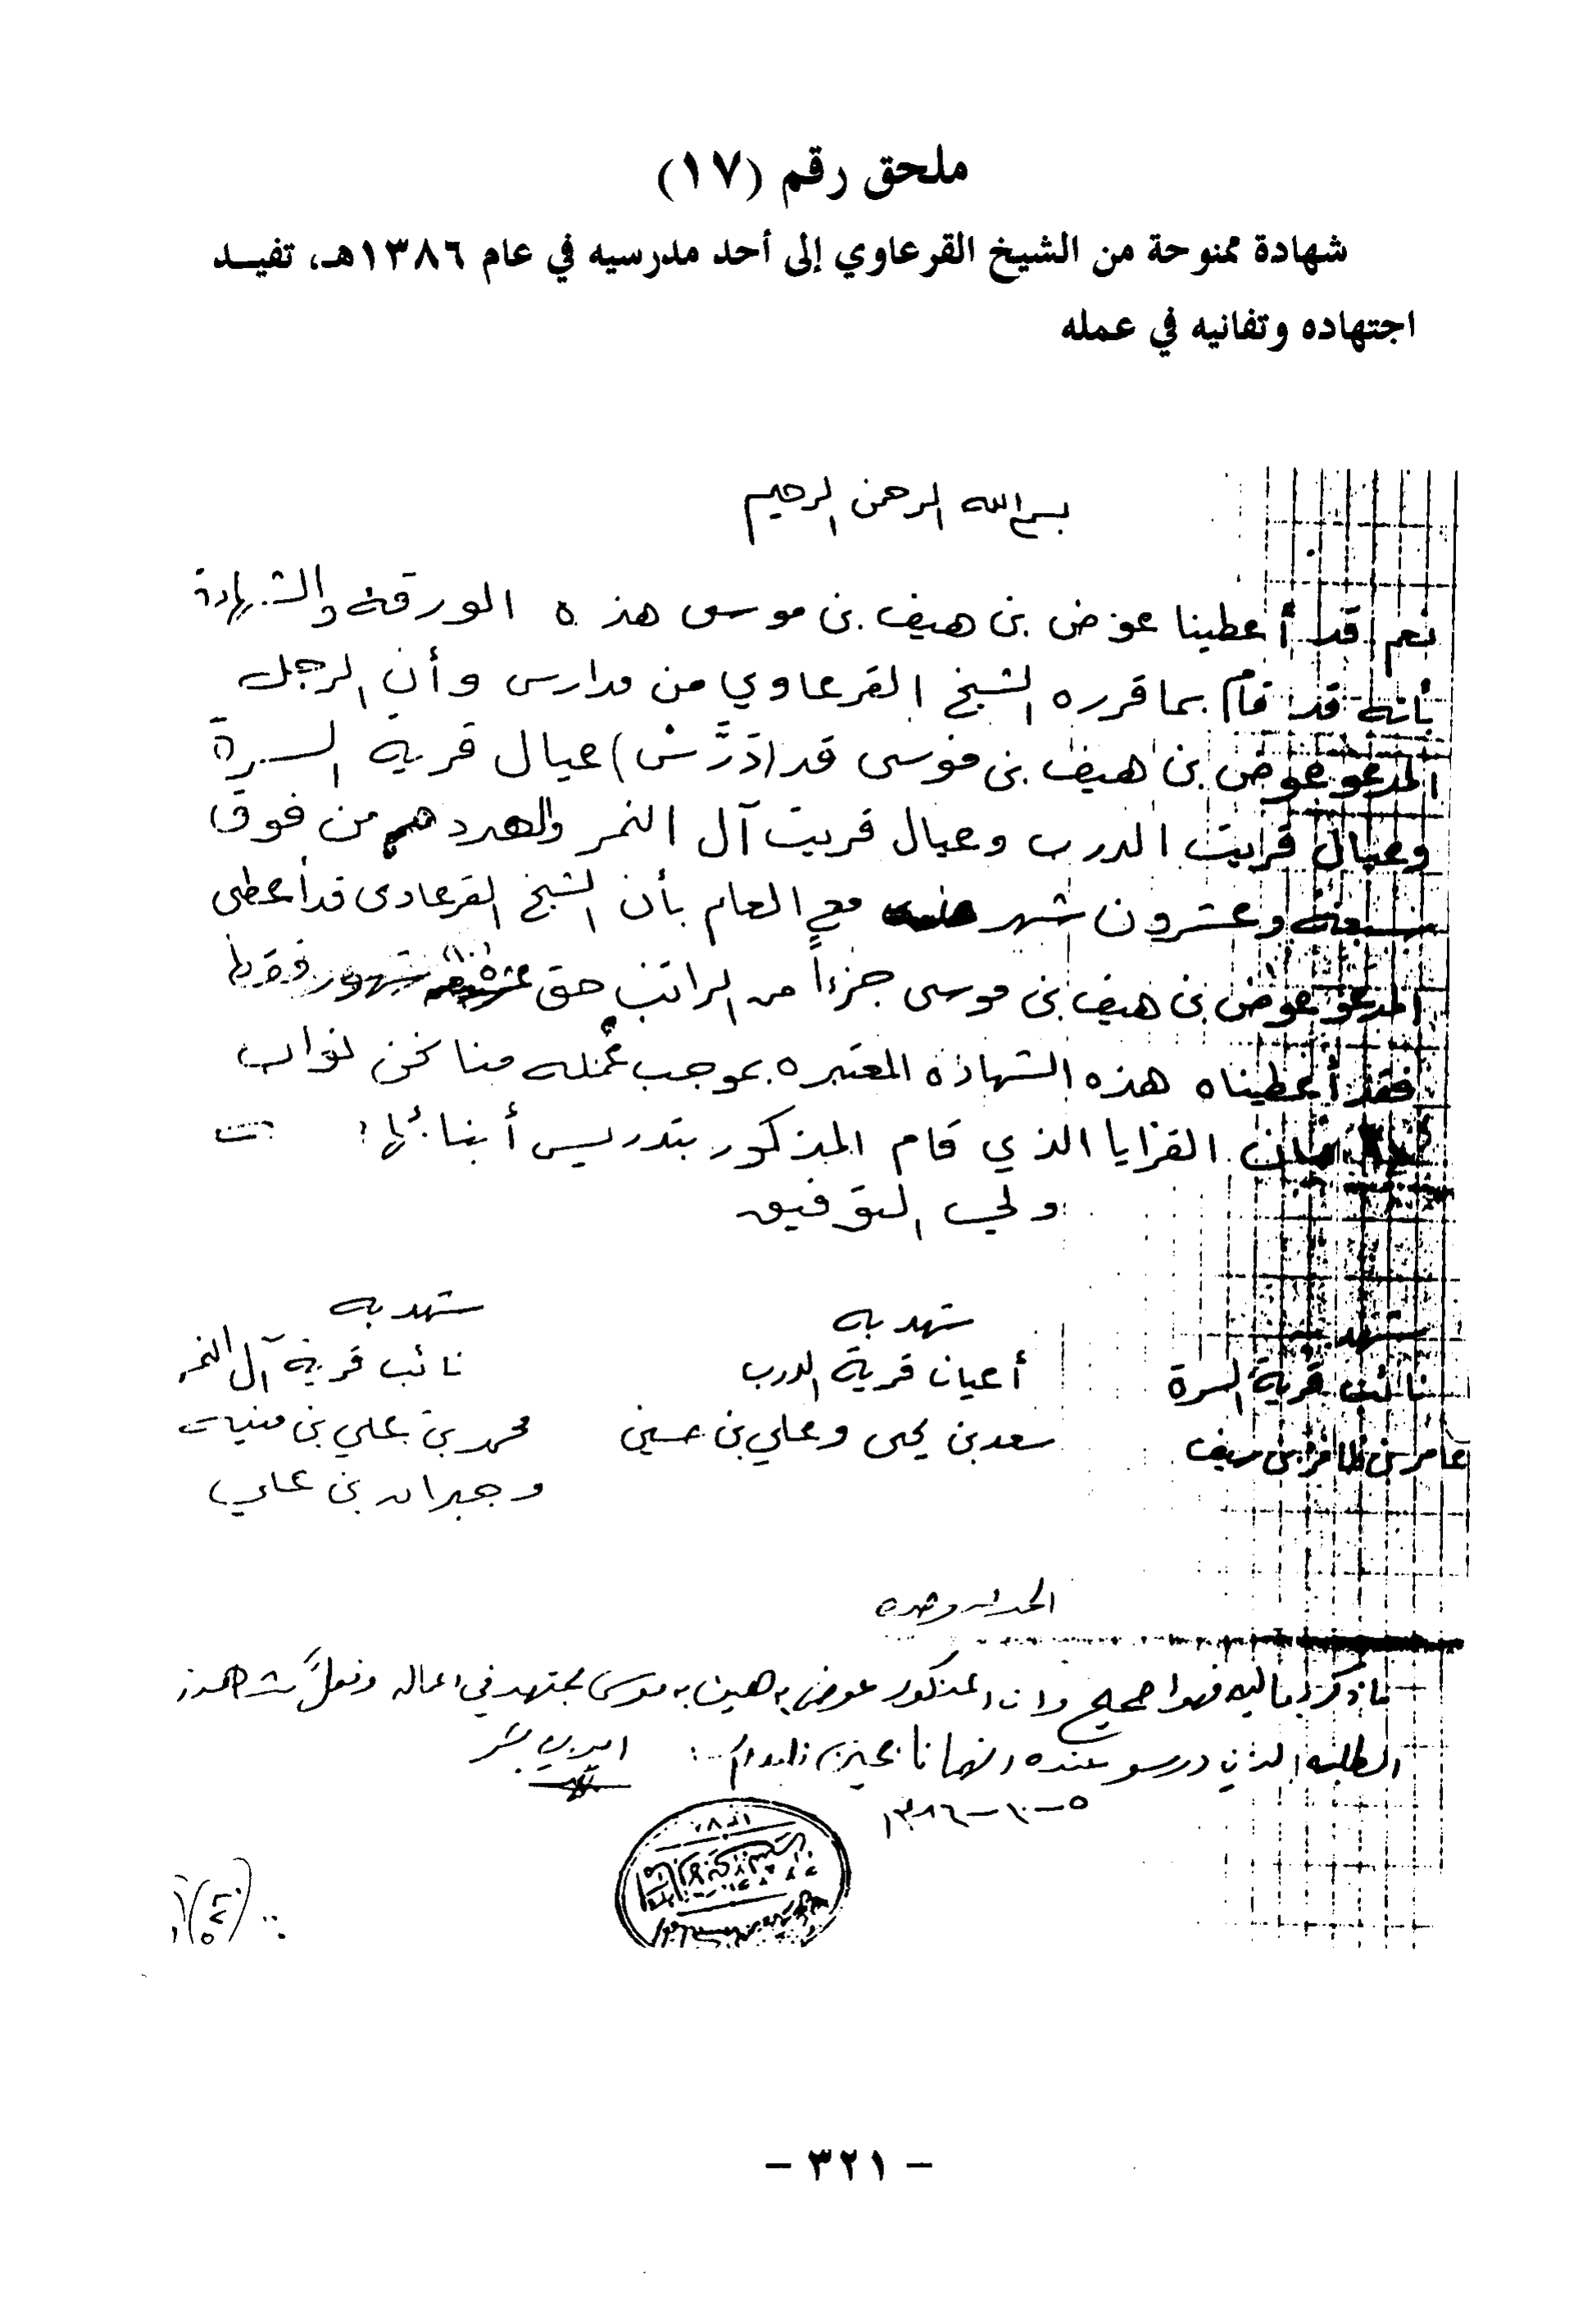 ملحق رقم (١٧)
شهادة ممنوحة من الشيخ القرعاوي إلى أحد مدرسيه في عام ١٣٨٦هـ، تفيـد
اجتهاده وتفانيه في عمله
بسم الله الرحمن الرحيم
نعم قد أعطينا عوض بن هيف بن موسى هذه الورقة والشهادة
بأنه قد قام بما قرره الشيخ القرعاوي من مدارس وأن الرجل
المدعو عوض بن هيف بن موسى قد (دَرَّسْ) عيال قرية السرة
وعيال قريت الدرب وعيال قريت آل النمر والعدد هم من فوق
سبعة وعشرون شهر مع العام بأن الشيخ القرعاوى قد أعطى
المدعو عوض بن هيف بن موسى جزءاً من الراتب حق شهور فقط
فقد أعطيناه هذه الشهادة المعتبره بموجب عمله منا نحن نواب
القرايا الذي قام المذكور بتدريس أبنائها:
ولي التوفيق
شهد به
نائب قرية السرة
عامر بن ظافر بن سيف
شهد به
أعيان قرية الدرب
سعد بن يحى وعلي بن حسين
شهد به
نائب قرية آل النمر
محمد بن علي بن منيه
وجبران بن علي
الحمد لله وحده
ما ذكر فهوا صحيح وان المذكور عوض بن هيف بن موسى مجتهد في اعماله وفعلاً شاهدنا
الطلبه الذين درسو عنده
٥-١٠-١٣٨٦
- ٣٢١ -